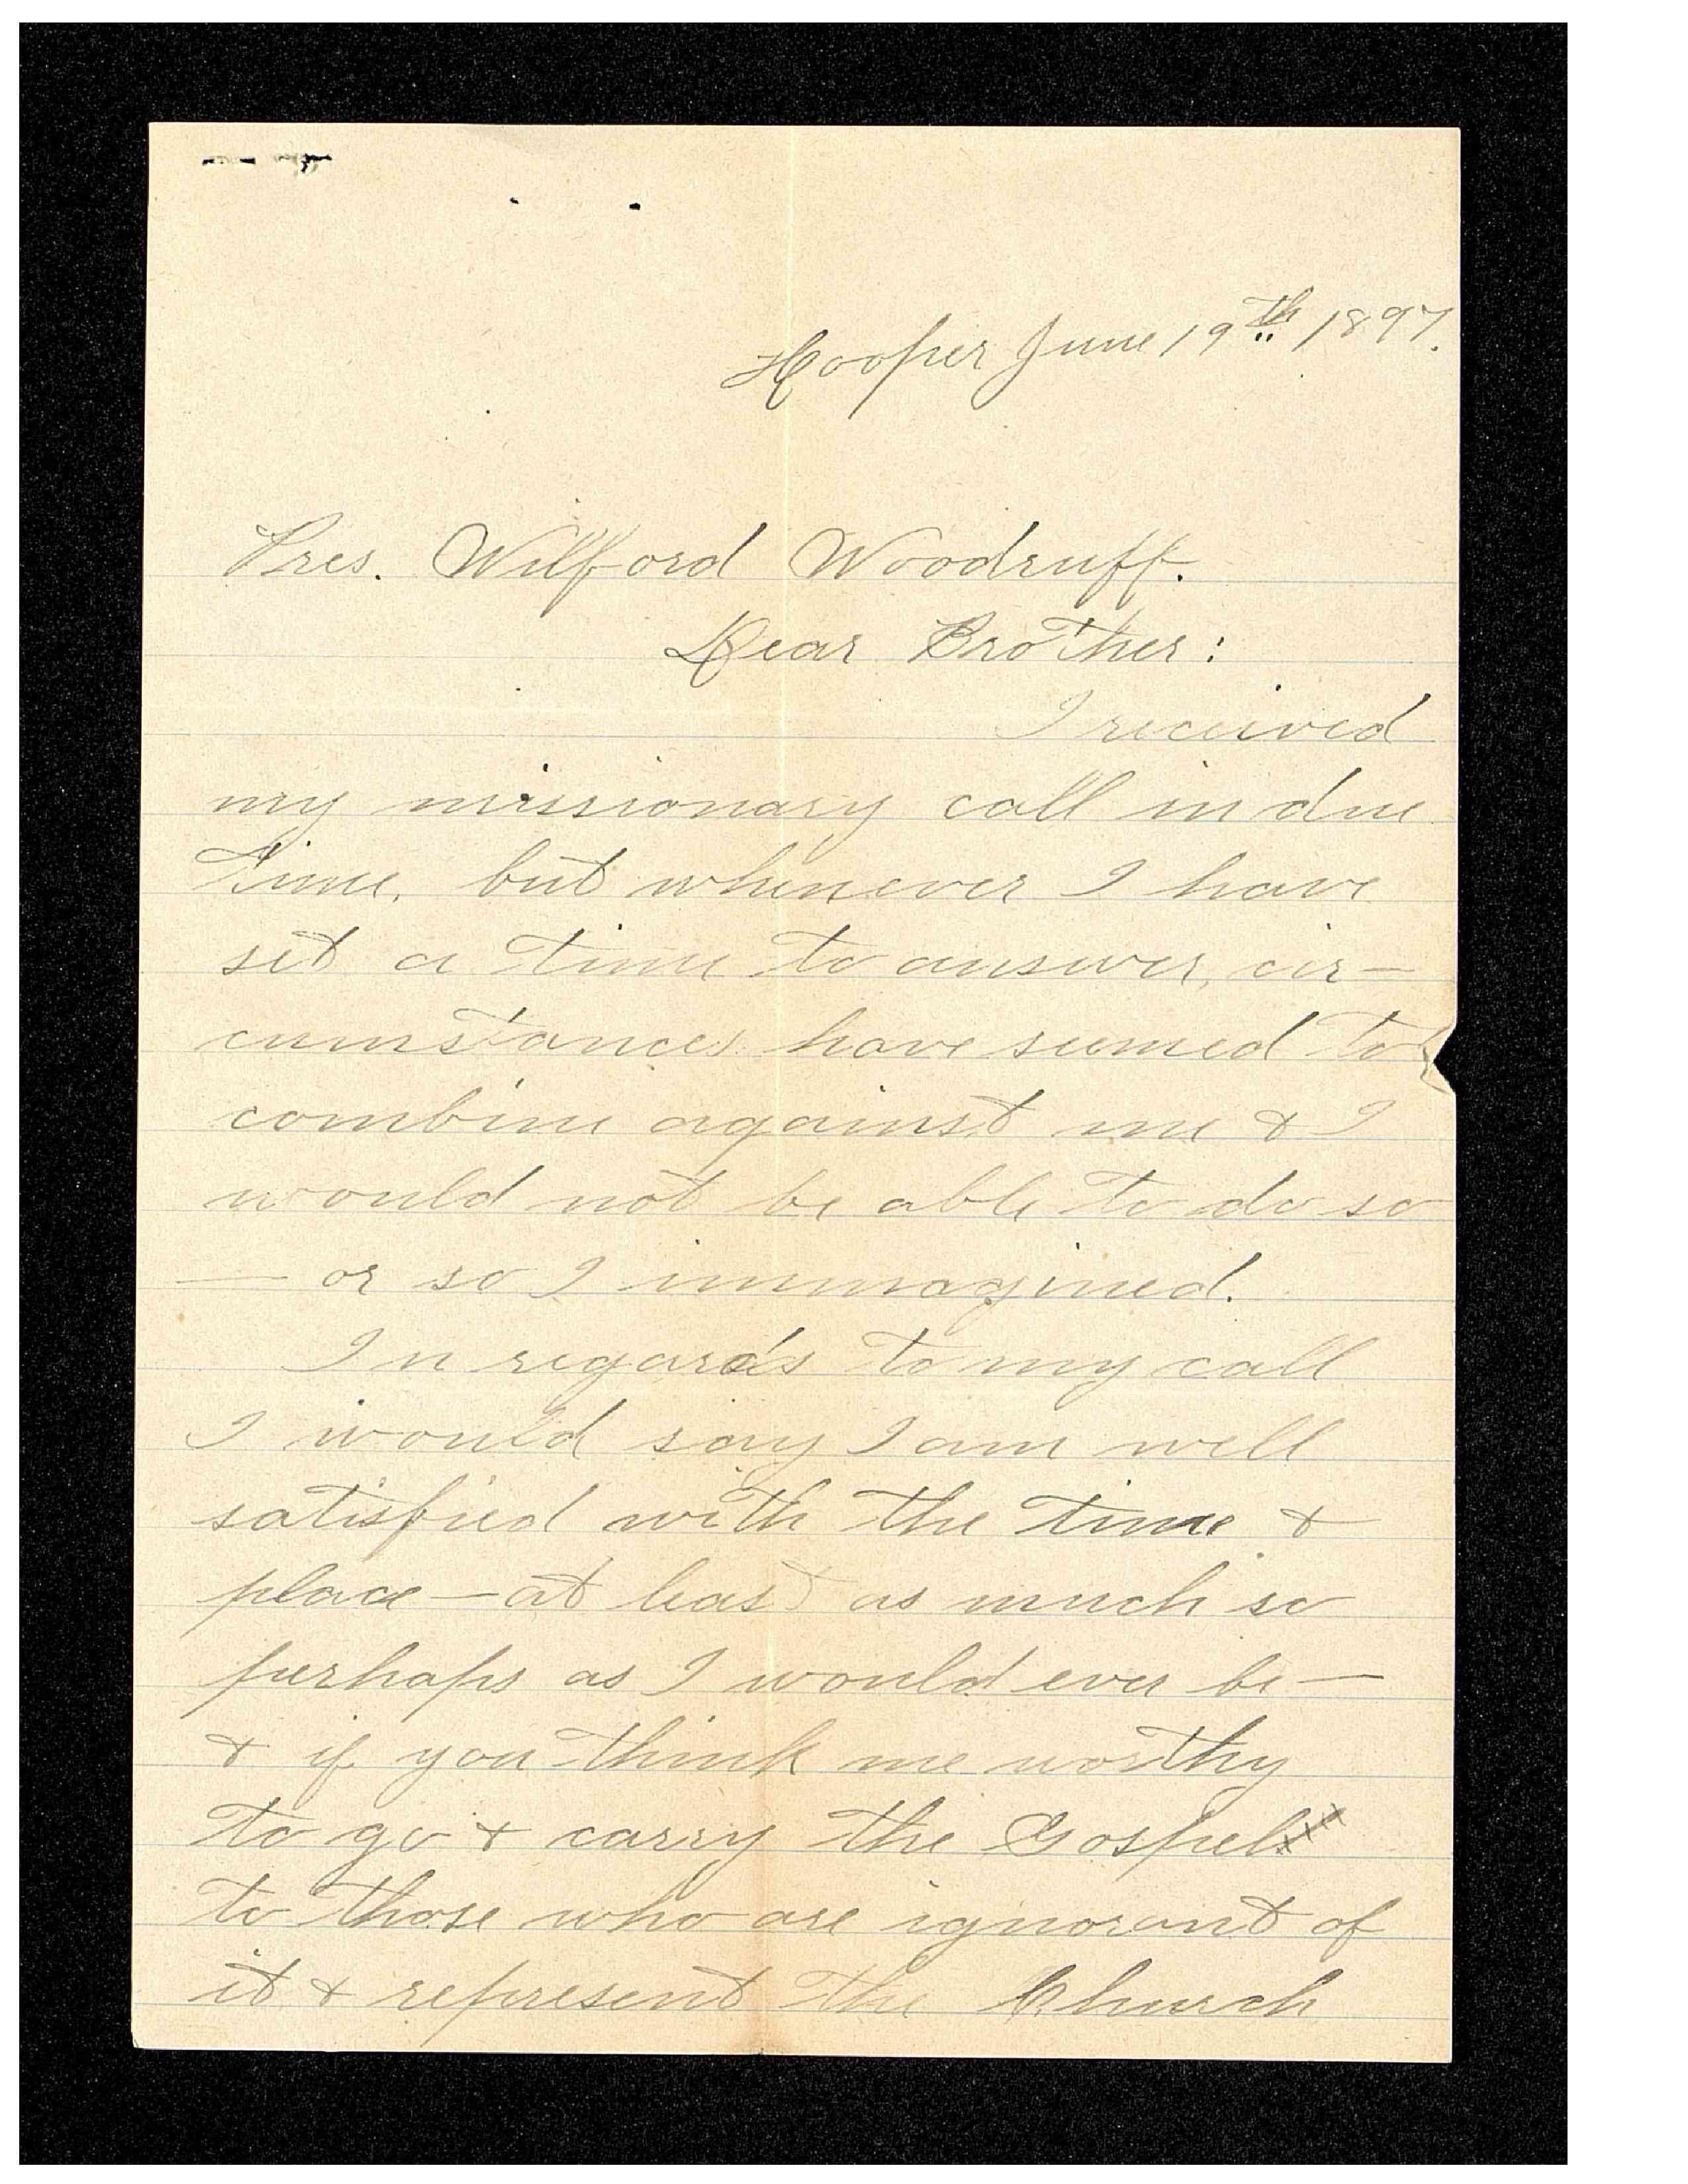 Hooper June 19th 1897.
Pres. Wilford Woodruff.
Dear Brother:
I received
my missionary call in due
time, but whenever I have
set a time to answer, cir-
cumstances have seemed to
combine against me & I
would not be able to do so
— or so I immagined.
In regards to my call
I would say I am well
satisfied with the time &
place — at least as much so
perhaps as I would ever be —
& if you think me worthy
to go & carry the Gospel
to those who are ignorant of
it & represent the Church